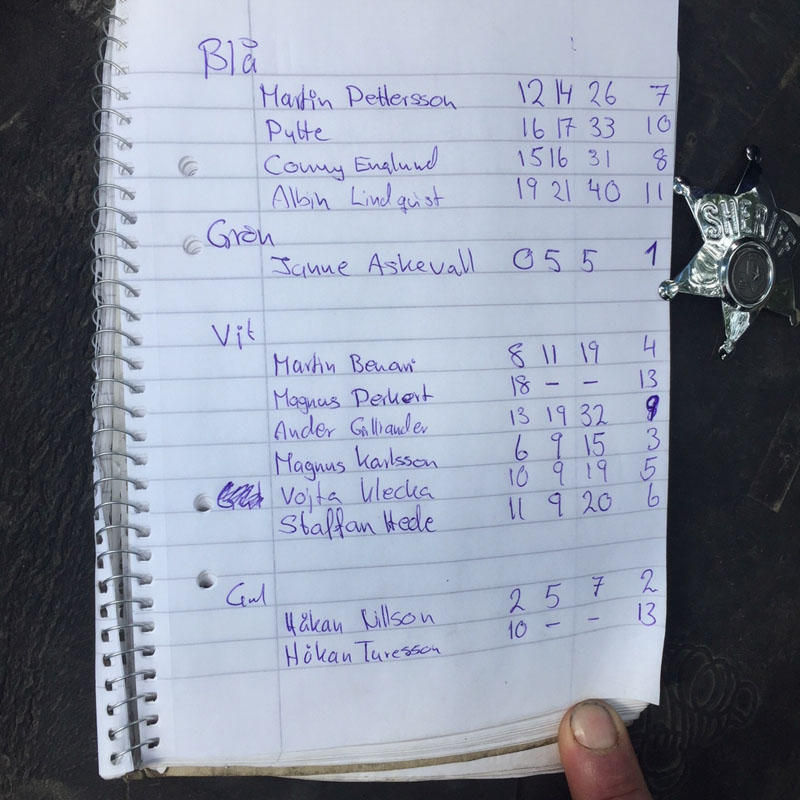 Blå
Martin Pettersson 12 14 26 7
Pytte 16 17 33 10
Conny Englund 15 16 31 8
Albin Lindquist 19 21 40 11
Grön
Janne Askevall 0 5 5 1
Vit
Martin Benari 8 11 19 4
Magnus Derkert 18 - - 13
Ander Gilliander 13 19 32 9
Magnus Karlsson 6 9 15 3
Vojta Klecka 10 9 19 5
Staffan Hede 11 9 20 6
Gul
Håkan Nillson 2 5 7 2
Håkan Turesson 10 - - 13
SHERIFF